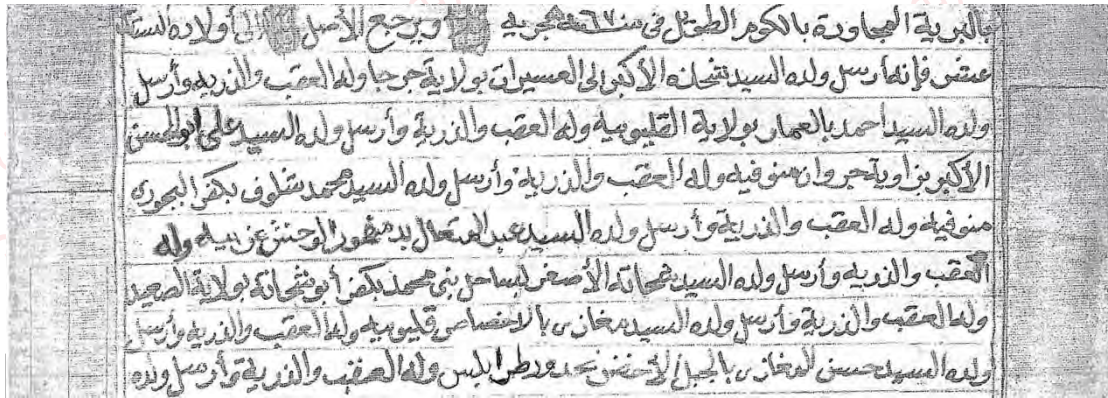 بالبرية المجاورة بالكوم الطويل فى سنة ٦٧ هجريه ويرجع الأصل إلى أولاده الستة
عشر فإنه أرسل ولده السيد شحاته الأكبر إلى العسيرات بولاية جرجا وله العقب والذريه وأرسل
ولده السيد أحمد بالعمار بولاية القليوبيه وله العقب والذرية وأرسل ولده السيد على ابو الحسن
الأكبر بزاوية جروان منوفيه وله العقب والذريه وأرسل ولده السيد محمد شلوف بكفر البجورى
منوفيه وله العقب والذرية وأرسل ولده السيد عبد المتعال بدمنهور الوحش غربيه وله
العقب والذريه وأرسل ولده السيد شحاتة الأصغر لساحل بنى محمد بكفر أبو شحاتة بولاية الصعيد
وله العقب والذرية وأرسل ولده السيد مغازى بالاخصاص قليوبيه وله العقب والذريه وأرسل
ولده السيد حسن المغازى بالجبل الأخضر بحدود طرابلس وله العقب والذرية وأرسل ولده